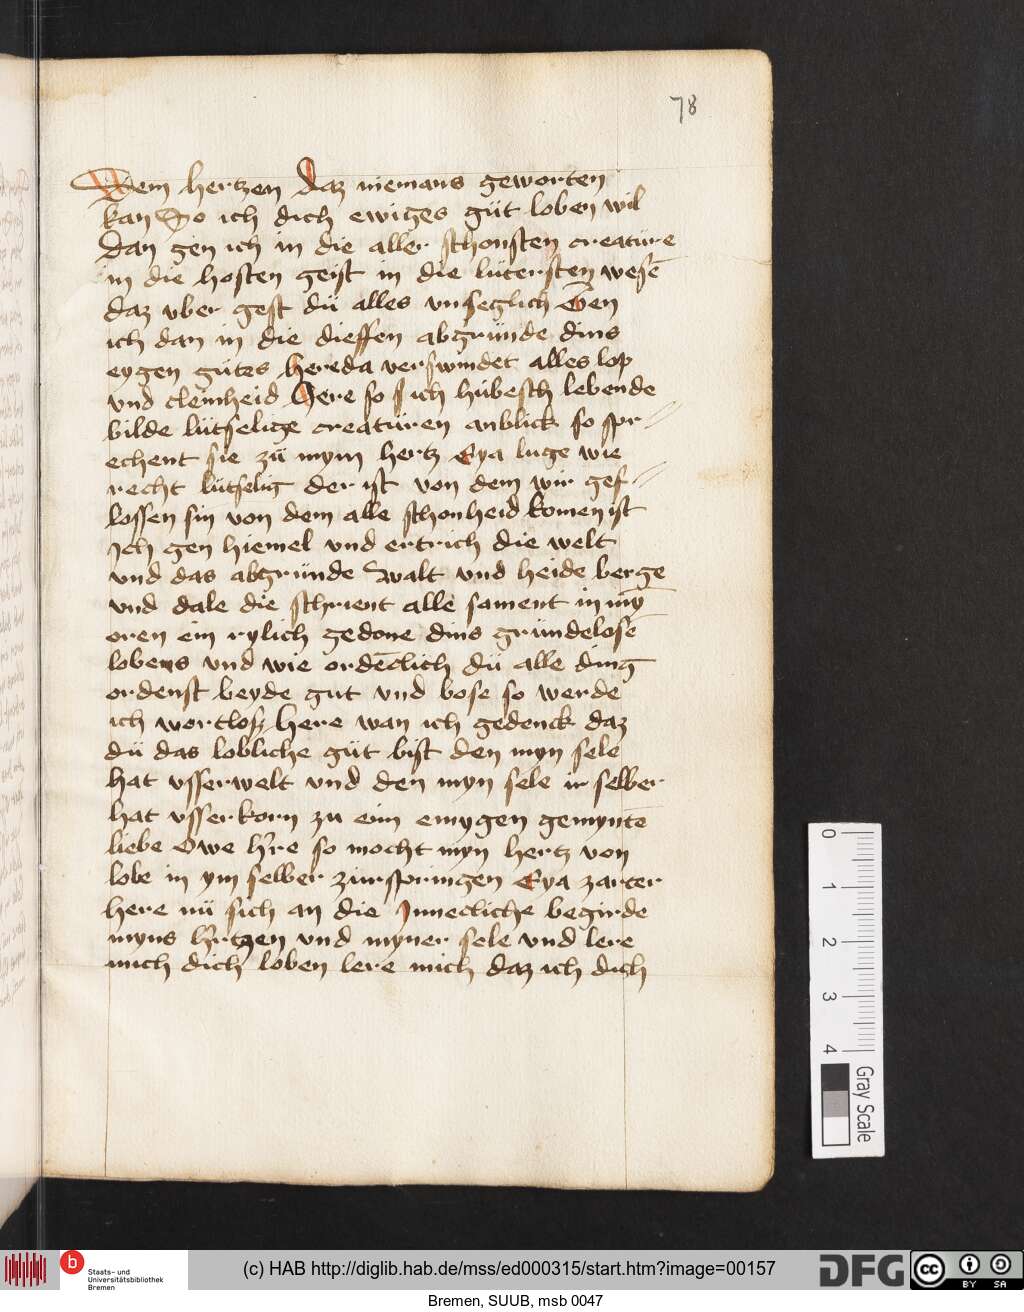 78
Dem hertzen Daz niemans geworten
kan So ich dich ewiges güt loben wil
dan gen ich in die aller schonsten creatüre
in die hosten geist in die lütersten wesē
daz vber gest dü alles vnseglich Gen
ich dan in die dieffen abgründe dins
eygen gütes hereda verswindet alles lop
vnd cleinheid Here so ich hübesch lebende
bilde lütselige creatüren anblick so spr-
echent sie zü mym hertz Eya luge wie
recht lütselig der ist von dem wir gef-
lossen sin von dem alle schonheid komen ist
Ich gen hiemel vnd ertrich die welt
vnd das abgründe walt vnd heide berge
vnd dale die schrient alle sament in mȳ
oren ein rylich gedone dins gründelosē
lobens vnd wie ordēclich dü alle ding
ordenst beyde gut vnd bose so werde
ich wortlosz here wan ich gedenck daz
dü das lobliche güt bist den myn sele
hat vsserwelt vnd den myn sele ir selber
hat vsserkorn zu eim emygen gemyntē
liebe Owe h're so mocht myn hertz von
lobe in ym selber zürspringen Eya zarter
here nü sich an die Innecliche begirde
myns h'rtzen vnd myner sele vnd lere
mich dich loben lere mich daz ich dich
0
1
2
3
4
Gray Scale
b
Staats- und
Universitätsbibliothek
Bremen
(c) HAB http://diglib.hab.de/mss/ed000315/start.htm?image=00157
DFG
cc BY SA
Bremen, SUUB, msb 0047